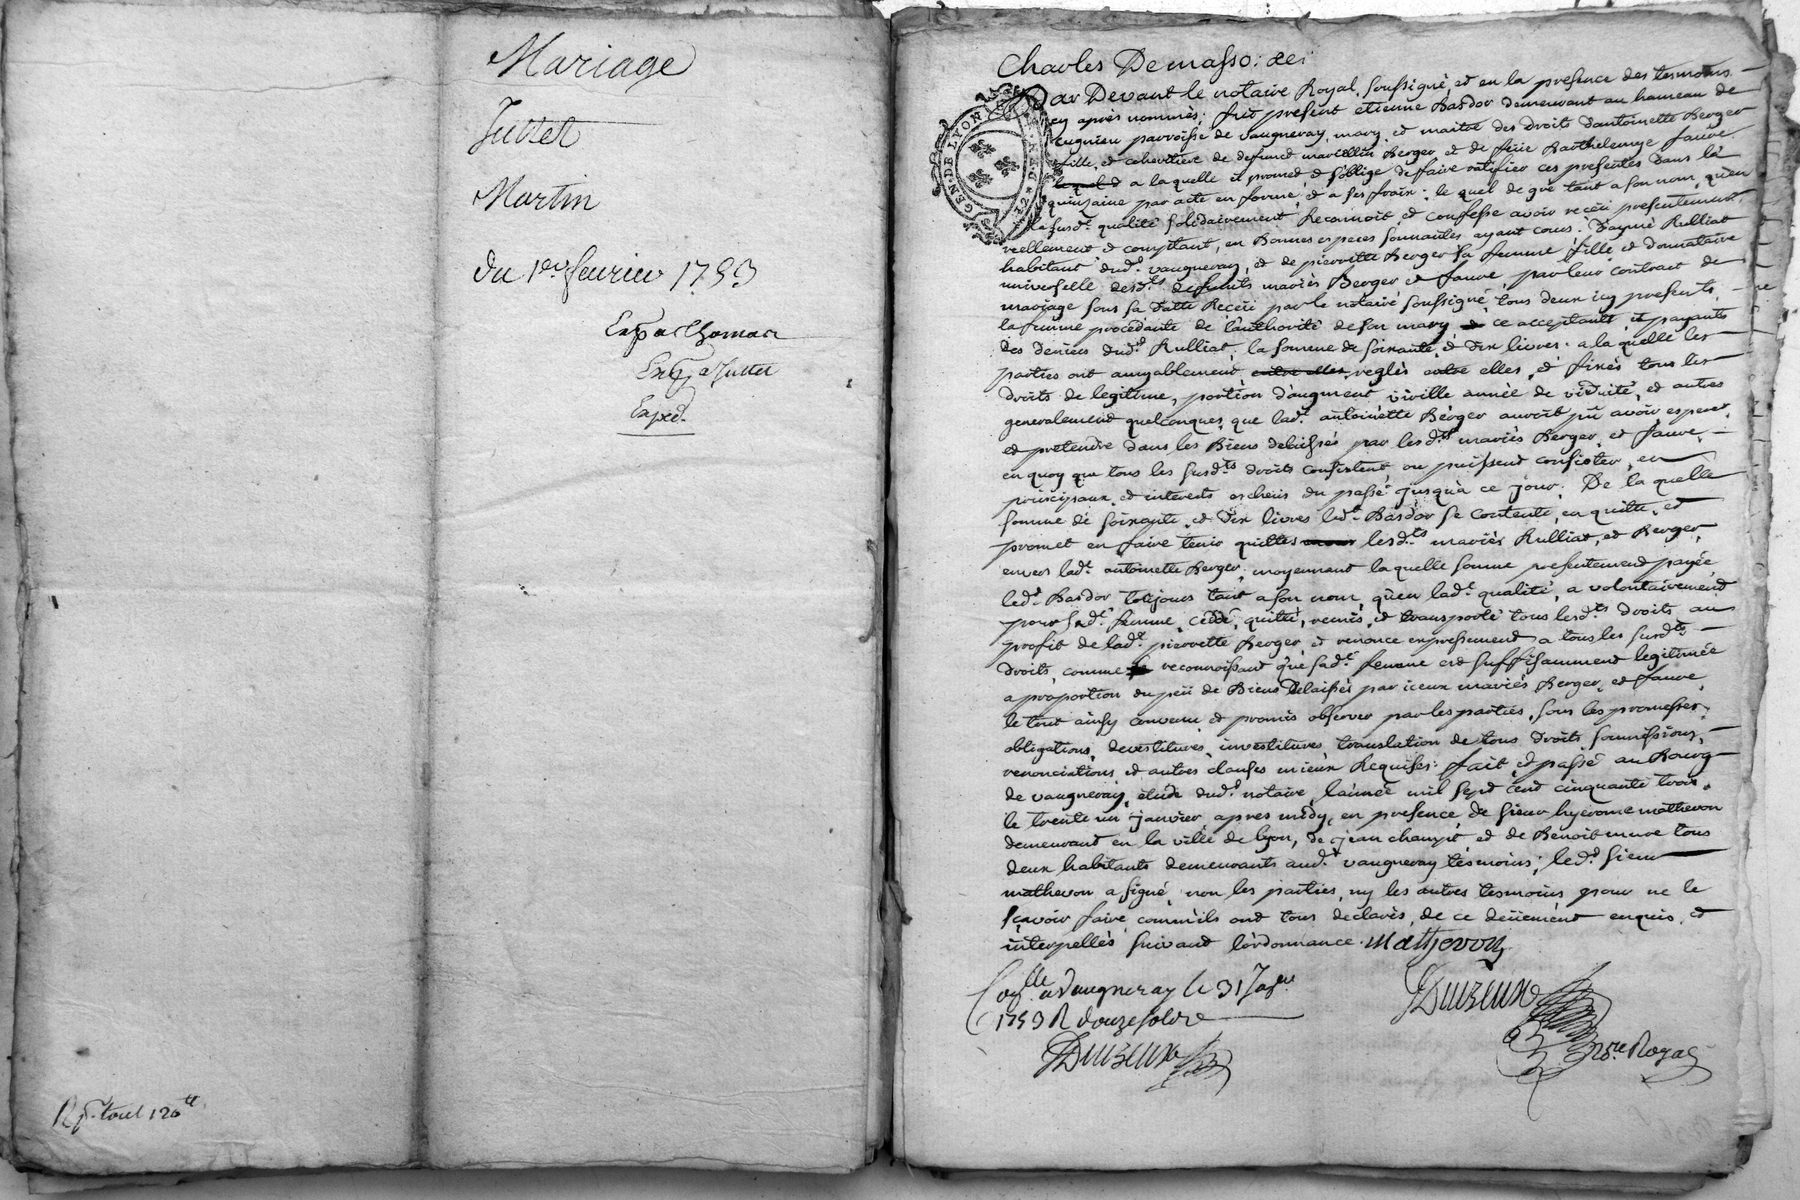 Mariage
Juttet
Martin
du 1er fevrier 1753
Exp a Thomas
Exp a Juttet
Exped.
R. tout 120tt
Charles Demasso: dei
GEN. DE LYON
Par Devant le notaire Royal, soussigné, et en la presence des tesmoins
cy après nommés; fut present etienne Basdor demeurant au hameau de
cugnieu parroisse de vaugneray, mary, et maitre des droits d'antoinette Berger
fille, et cohéritière de defunct marcellin Berger et de feüe Barthelemye fauve
a laquelle il promed et s'oblige de faire ratifier ces presentes dans la
quinzaine par acte en forme, et a ses frais: le quel de gré tant a son nom, qu'en
la susde. qualité solidairement Reconnoit, et confesse avoir recëu presentement,
reellement et comptant, en Bonnes especes sonnantes ayant cours: D'aymé Rulliat
habitant dudt. vaugneray, et de pierrette Berger sa femme, fille, et donnataire
universelle desdts. defunts mariés Berger et fauve, par leur contract de
mariage sous sa datte Recëu par le notaire soussigné, tous deux icy presents,
la femme procédante de l'authorité de son mary et ce acceptants, et payants
des deniers dudt. Rulliat, la somme de soixante, et dix livres: a laquelle les
parties ont amyablement entre elles, reglés entre elles, et fixés tous les
droits de legitime, portion d'augment, virille année de viduité, et autres
generalement quelconques, que ladt. antoinette Berger auroit pû avoir, esperer,
et prétendre dans les Biens delaissés par lesdts. mariés Berger, et fauve,
en quoy que tous les susdts droits consistent, ou puissent consister, en
principaux, et interests escheus du passé jusqu'à ce jour; De la quelle
somme de soixante, et dix livres ledt. Basdor se contente, en quitte, et
promet en faire tenir quittes lesdts. mariés Rulliat, et Berger,
envers ladt. antoinette Berger, moyennant laquelle somme presentement payée
ledt. Basdor toujours tant a son nom, qu'en ladt. qualité, a volontairement
pour sadt. femme, cédé, quitté, remis, et transporté tous lesdts. droits au
profit de ladt. pierrette Berger, et renonce expressement a tous les susdts.
droits, comme reconnoissant que sadt. femme est suffisamment legitimée
a proportion du peü de Biens delaissés par iceux mariés Berger, et fauve,
le tout ainsy convenu et promis observer par les parties, sous les promesses,
obligations, devestitures, investitures, translation de tous droits, soumissions,
renonciations et autres clauses mieux Requises: fait et passé au Bourg
de vaugneray, etude dudt. notaire, l'année mil sept cent cinquante trois,
le trente un janvier, apres midy, en presence de sieur hyerome mathevon
demeurant en la ville de lyon, de jean et de Benoit mure tous
deux habitants demeurants audt. vaugneray tesmoins; ledt. sieur
mathevon a signé, non les parties, ny les autres tesmoins, pour ne le
sçavoir faire comm'ils ont tous declarés, de ce deüement enquis, et
interpellés suivant l'ordonnance. Mathevon
Conllé a Vaugneray le 31 Janer.
1753 R douze sols
Nore. Royal